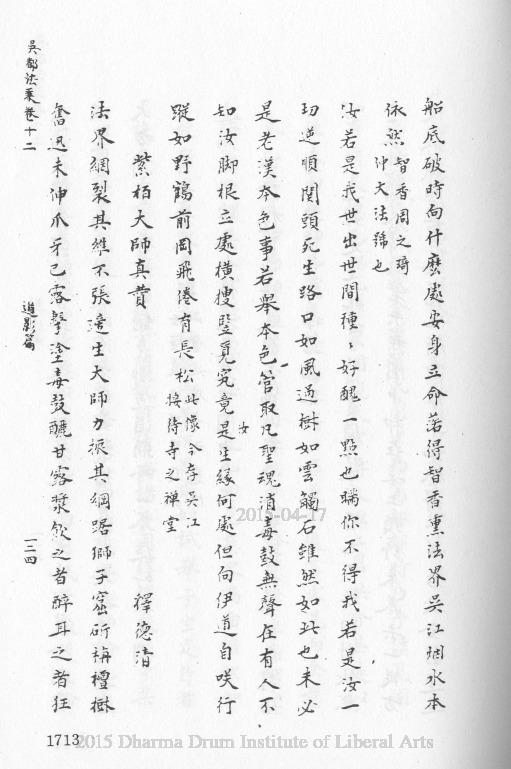 船底破時向什麼處安身立命薝得智香熏法界吳江烟水本
依然智香周之琦
仲大法號也
汝若是我世出世間種〻好醜一點也瞞你不得我若是汝一
切逆順関頭死生路口如風過樹如雲觸石雖然如此也未必
是老漢本色事若舉本色管取凡聖魂消毒鼓無聲在有人不
知汝脚根立處橫搜豎覓究竟是汝生緣何處但向伊道自咲行
蹤如野鶴前岡飛倦有長松此像今存吳江
接待寺之禅堂
紫栢大師真賛
釋德清
法界綱裂其維不張適生大師力振其綱踞獅子窟斫栴檀樹
奮迅未伸爪牙已露擊塗毒鼓釃甘露漿飲之者醉耳之者狂
吳都法乘卷十二
道影篇
一二四
1713
2015-04-17
2015 Dharma Drum Institute of Liberal Arts